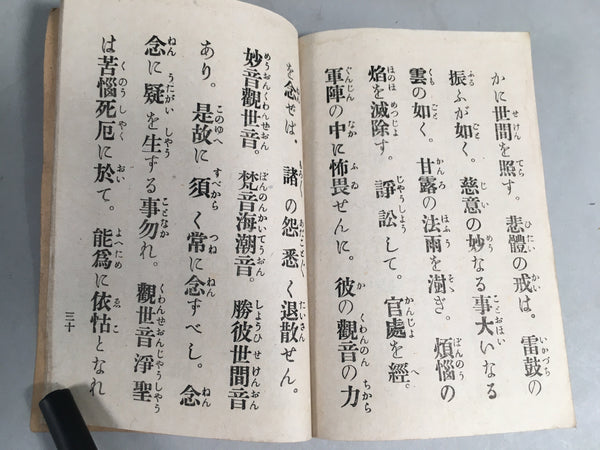 かに世間を照す。悲體の戒は。雷鼓の
振ふが如く。慈意の妙なる事大いなる
雲の如く。甘露の法雨を澍ぎ。煩惱の
焰を滅除す。諍訟して。官處を經。
軍陣の中に怖畏せんに。彼の觀音の力
を念せば。諸の怨悉く退散せん。
妙音觀世音。梵音海潮音。勝彼世間音
あり。是故に須く常に念ずべし。念
念に疑を生する事勿れ。觀世音淨聖
は苦惱死厄に於て。能爲に依怙となれ
三十